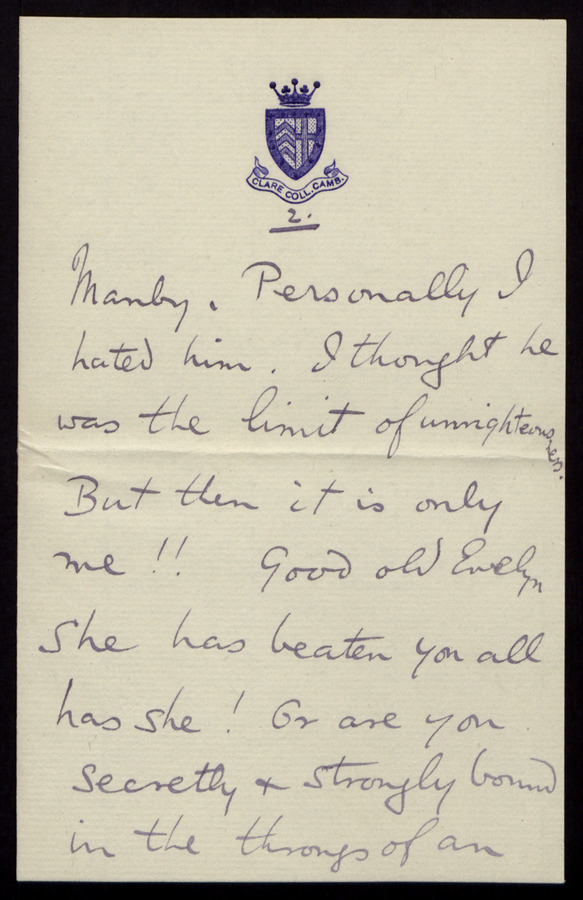 CLARE COLL. CAMB.
2.
Manby. Personally I
hated him. I thought he
was the limit of unrighteousness.
But then it is only
me!! Good old Evelyn
She has beaten you all
has she! Or are you
secretly & strongly bound
in the throngs of an